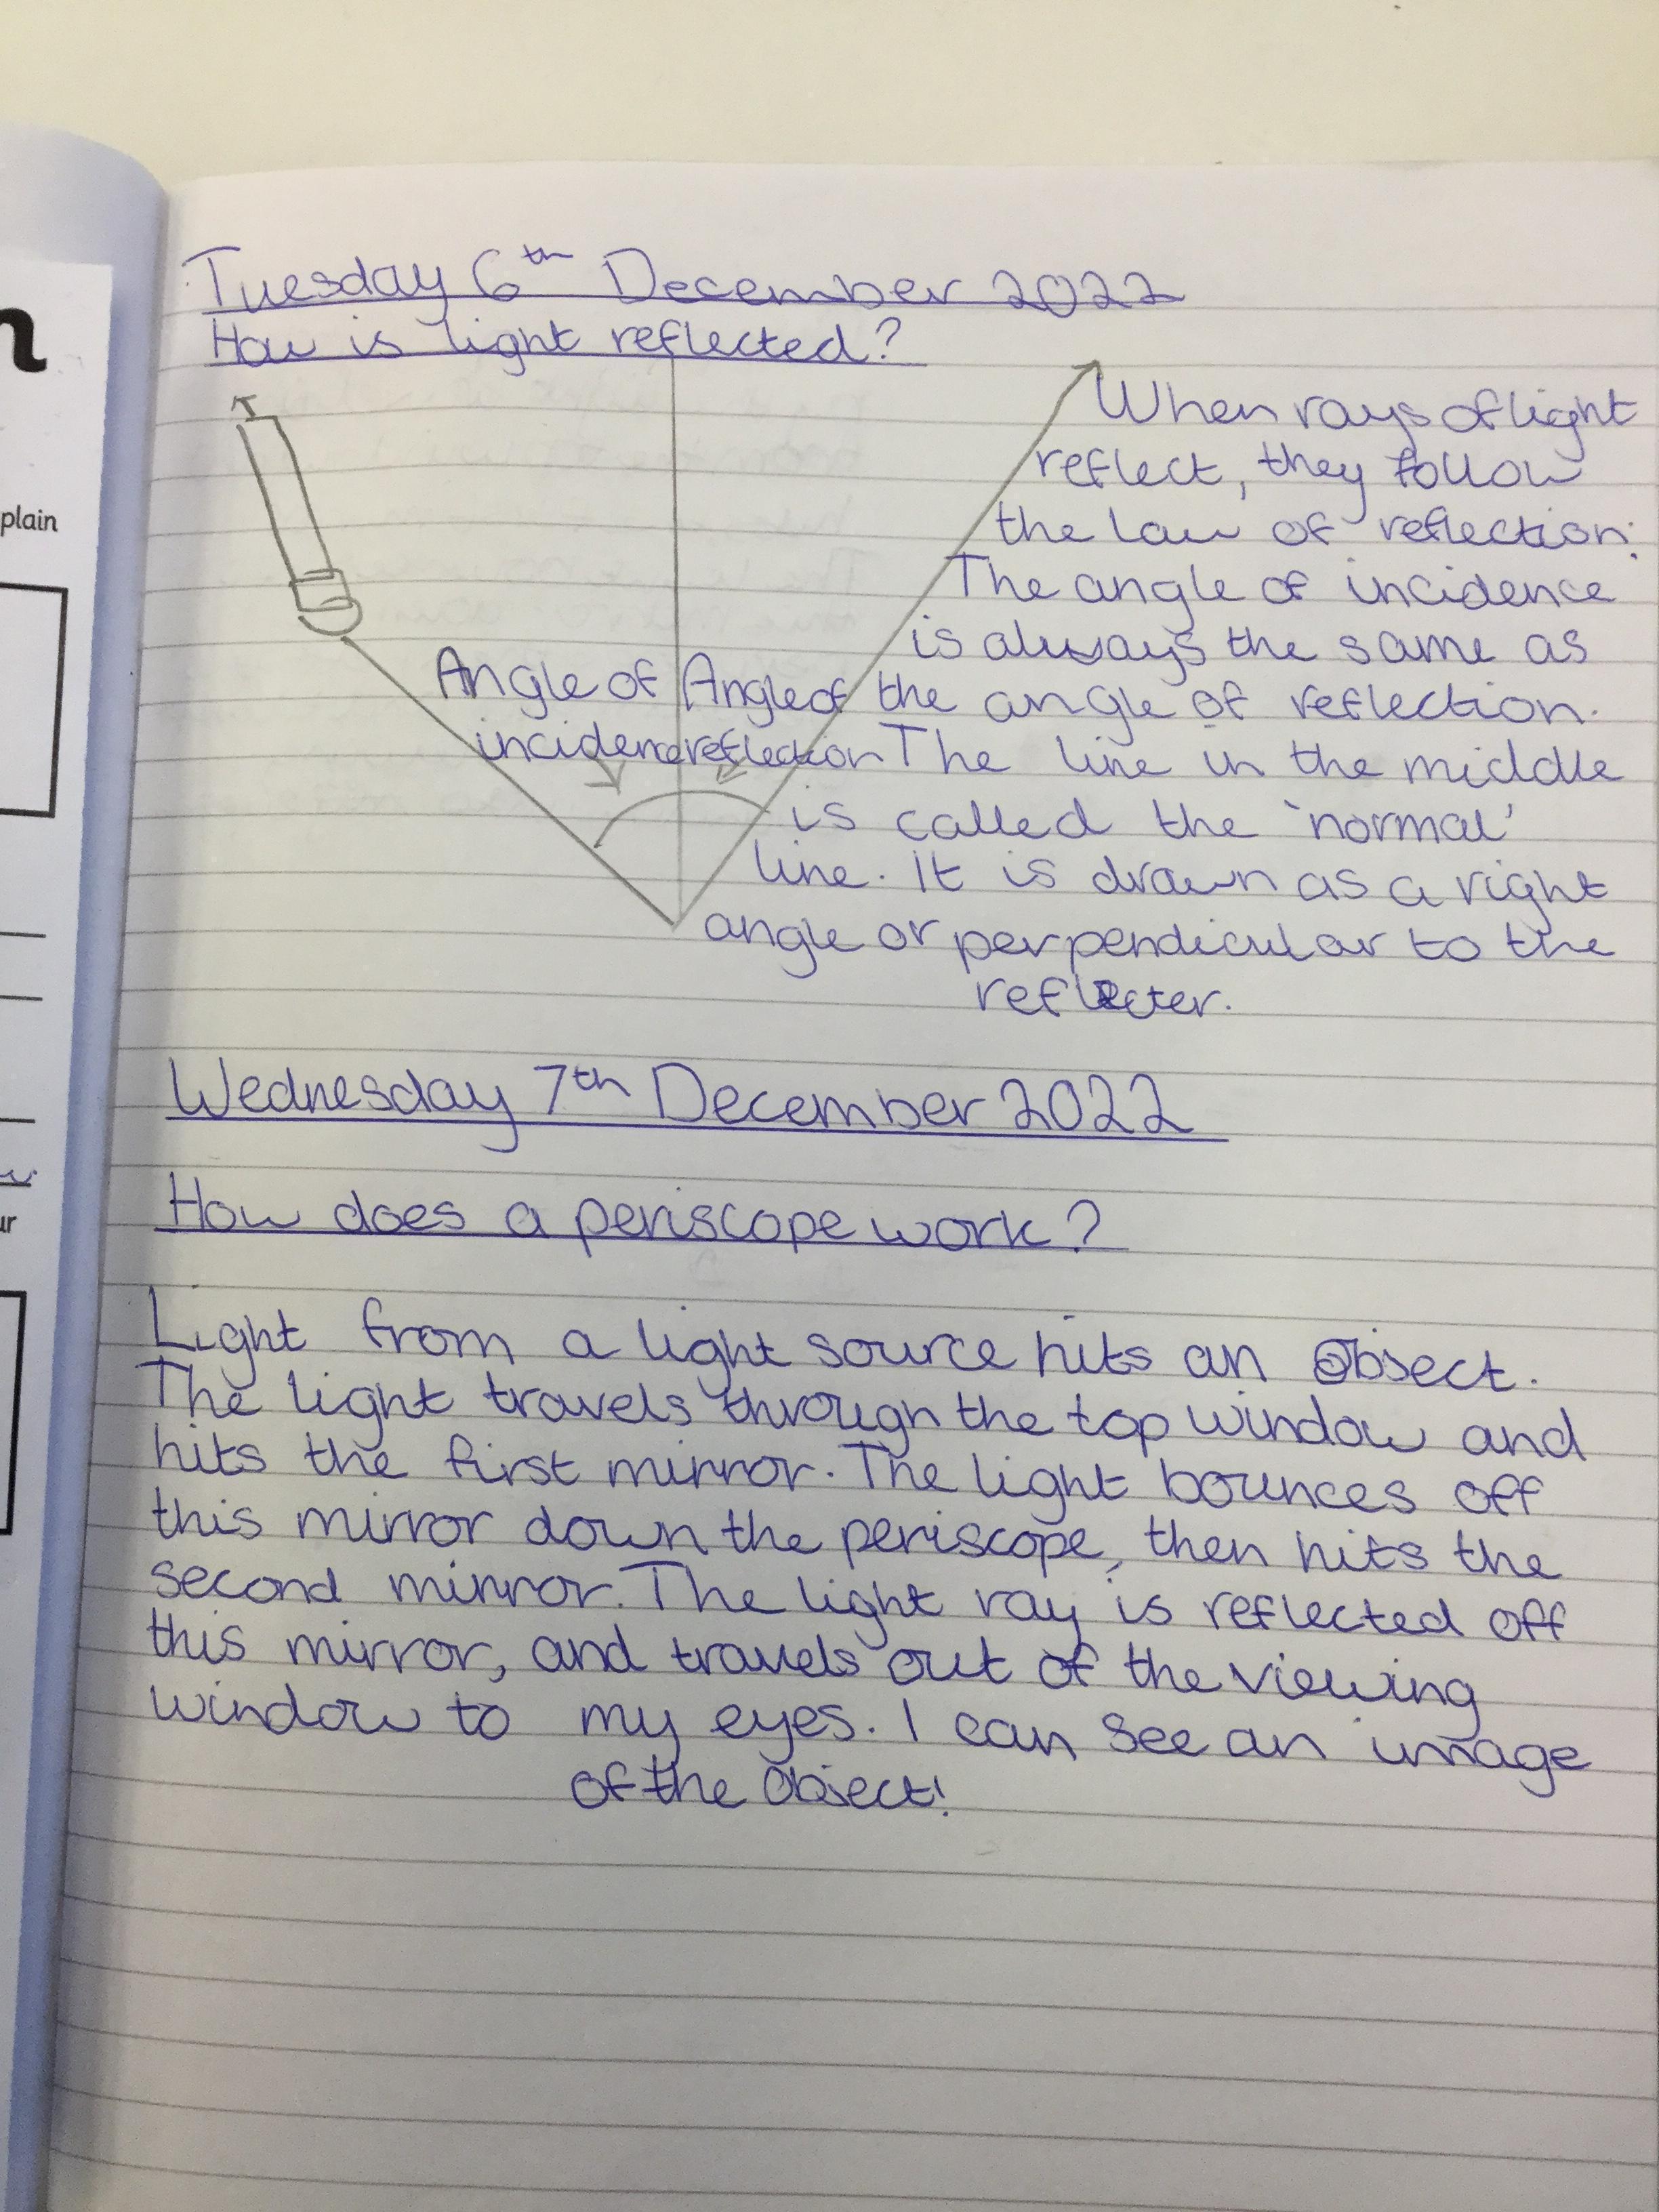 n
plain
ur
Tuesday 6th December 2022
How is light reflected?
When rays of light
reflect, they follow
the law of reflection:
The angle of incidence
is always the same as
the angle of reflection.
The line in the middle
is called the 'normal'
line. It is drawn as a right
angle or perpendicular to the
reflecter.
Angle of
incidence
Angle of
reflection
Wednesday 7th December 2022
How does a periscope work?
Light from a light source hits an object.
The light travels through the top window and
hits the first mirror. The light bounces off
this mirror down the periscope, then hits the
second mirror. The light ray is reflected off
this mirror, and travels out of the viewing
window to my eyes. I can see an image
of the object!